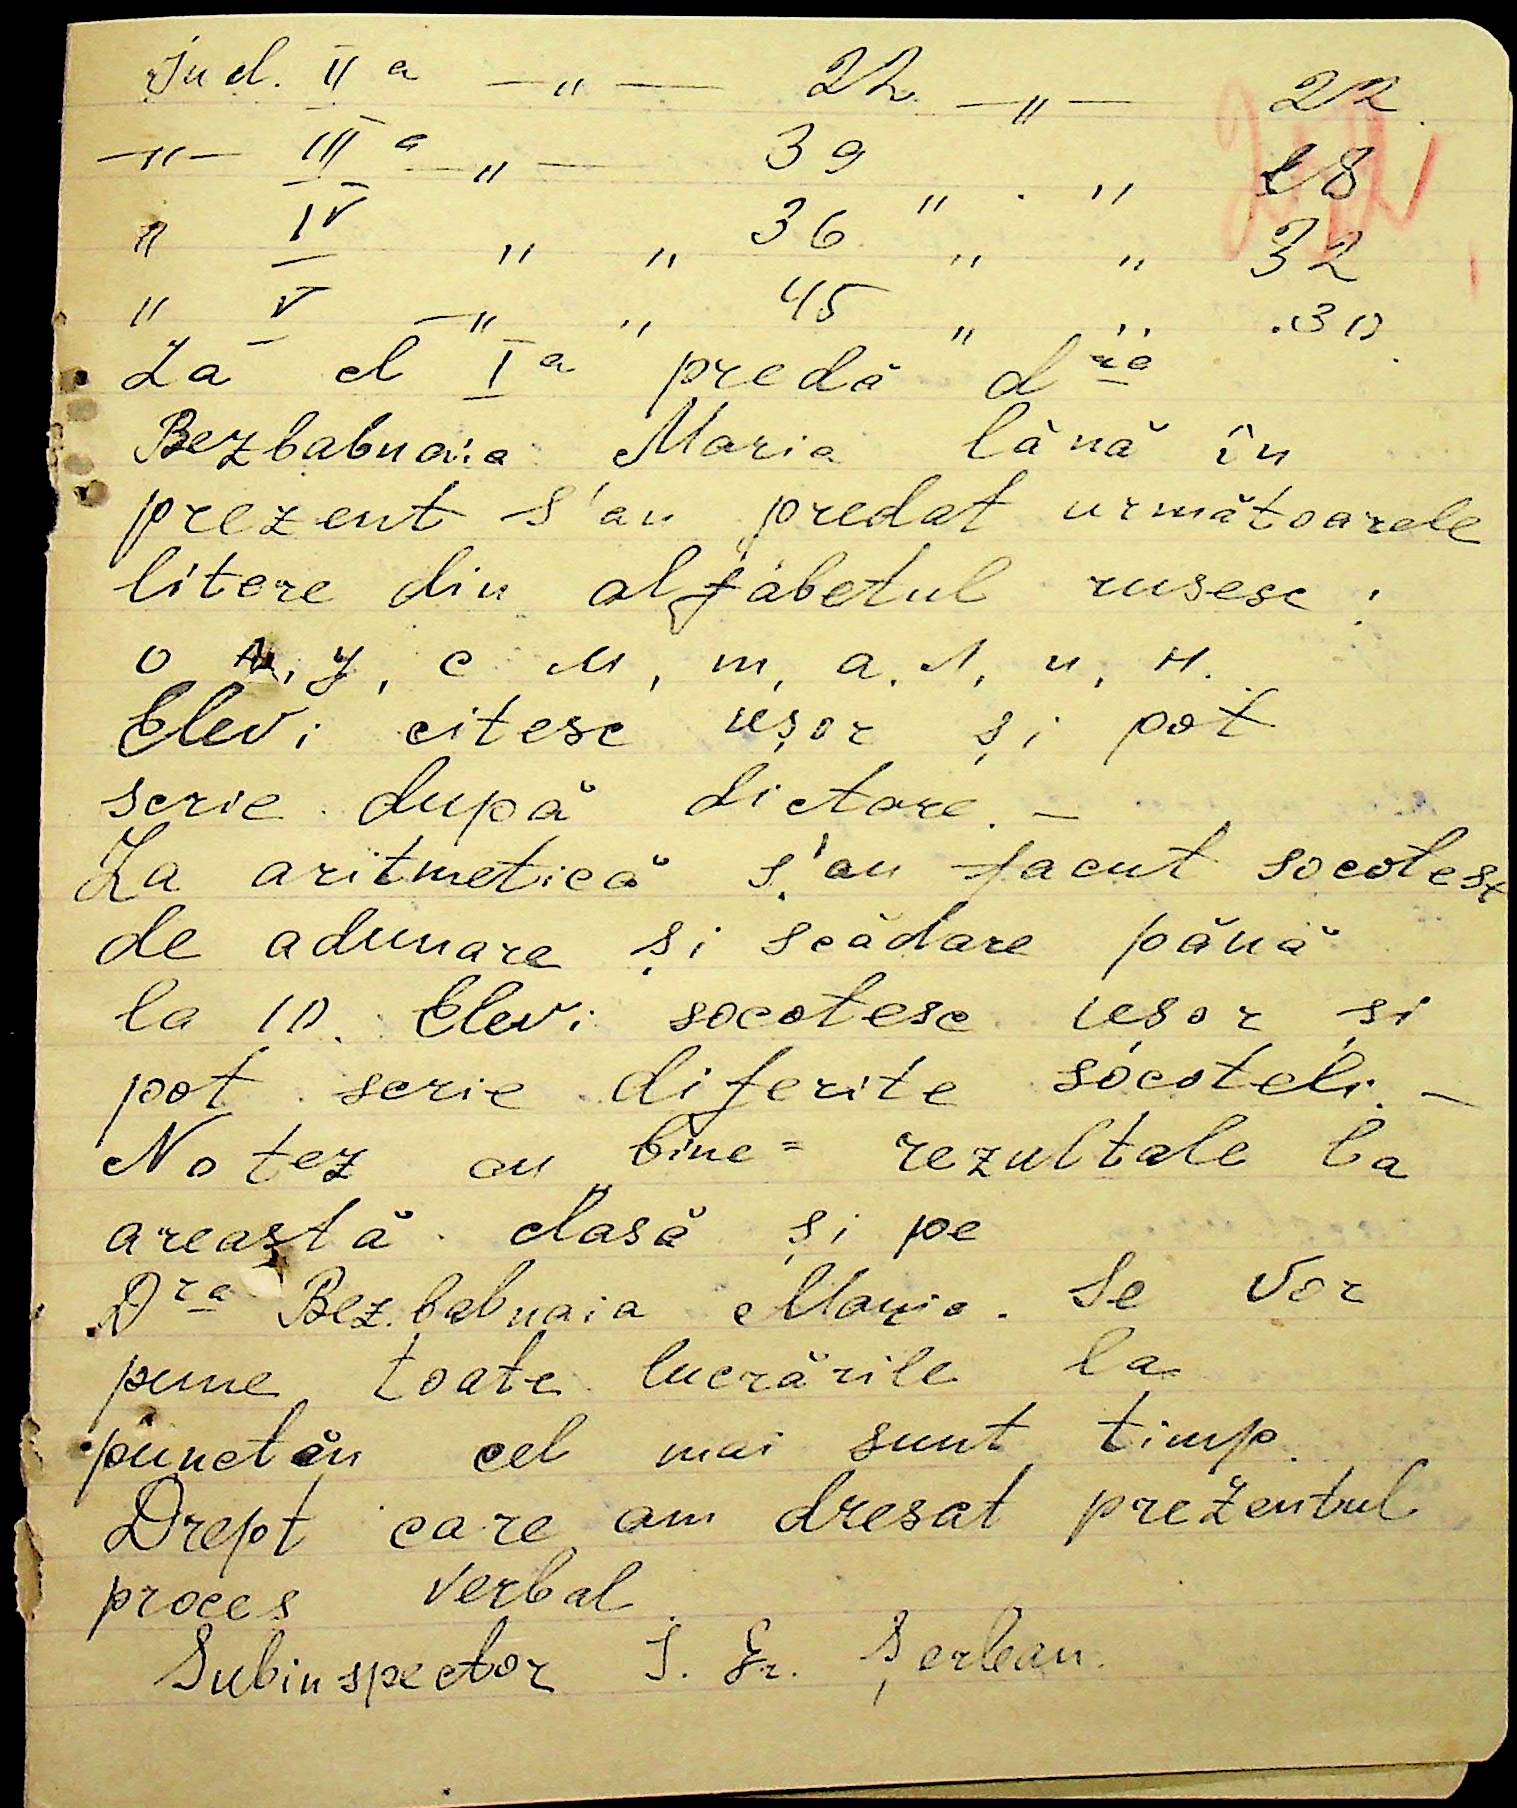 Ind. II a — „ — 22 — „ — 22.
— „ — III a — „ — 39 „ . „ 28
„ IV „ „ 36 „ „ 32
„ V — „ „ 45 „ „ 30.
La cl I a predă d ra
Bezbabnaia Maria Până în
prezent s'au predat următoarele
litere din alfabetul rusesc :
o у, с м, т, а, л, и, н.
Elevi citesc ușor și pot
scrie după dictare. —
La aritmetică s'au facut socotest
de adunare și scădare până
la 10. Elevi socotesc ușor și
pot scrie diferite socoteli. —
Notez cu bine = rezultale la
areastă clasă și pe
D ra Bezbabnaia Maria. Se vor
pune toate lucrările la
punct în cel mai sunt timp.
Drept care am dresat prezentul
proces verbal.
Subinspector I. Gr. Șerban.